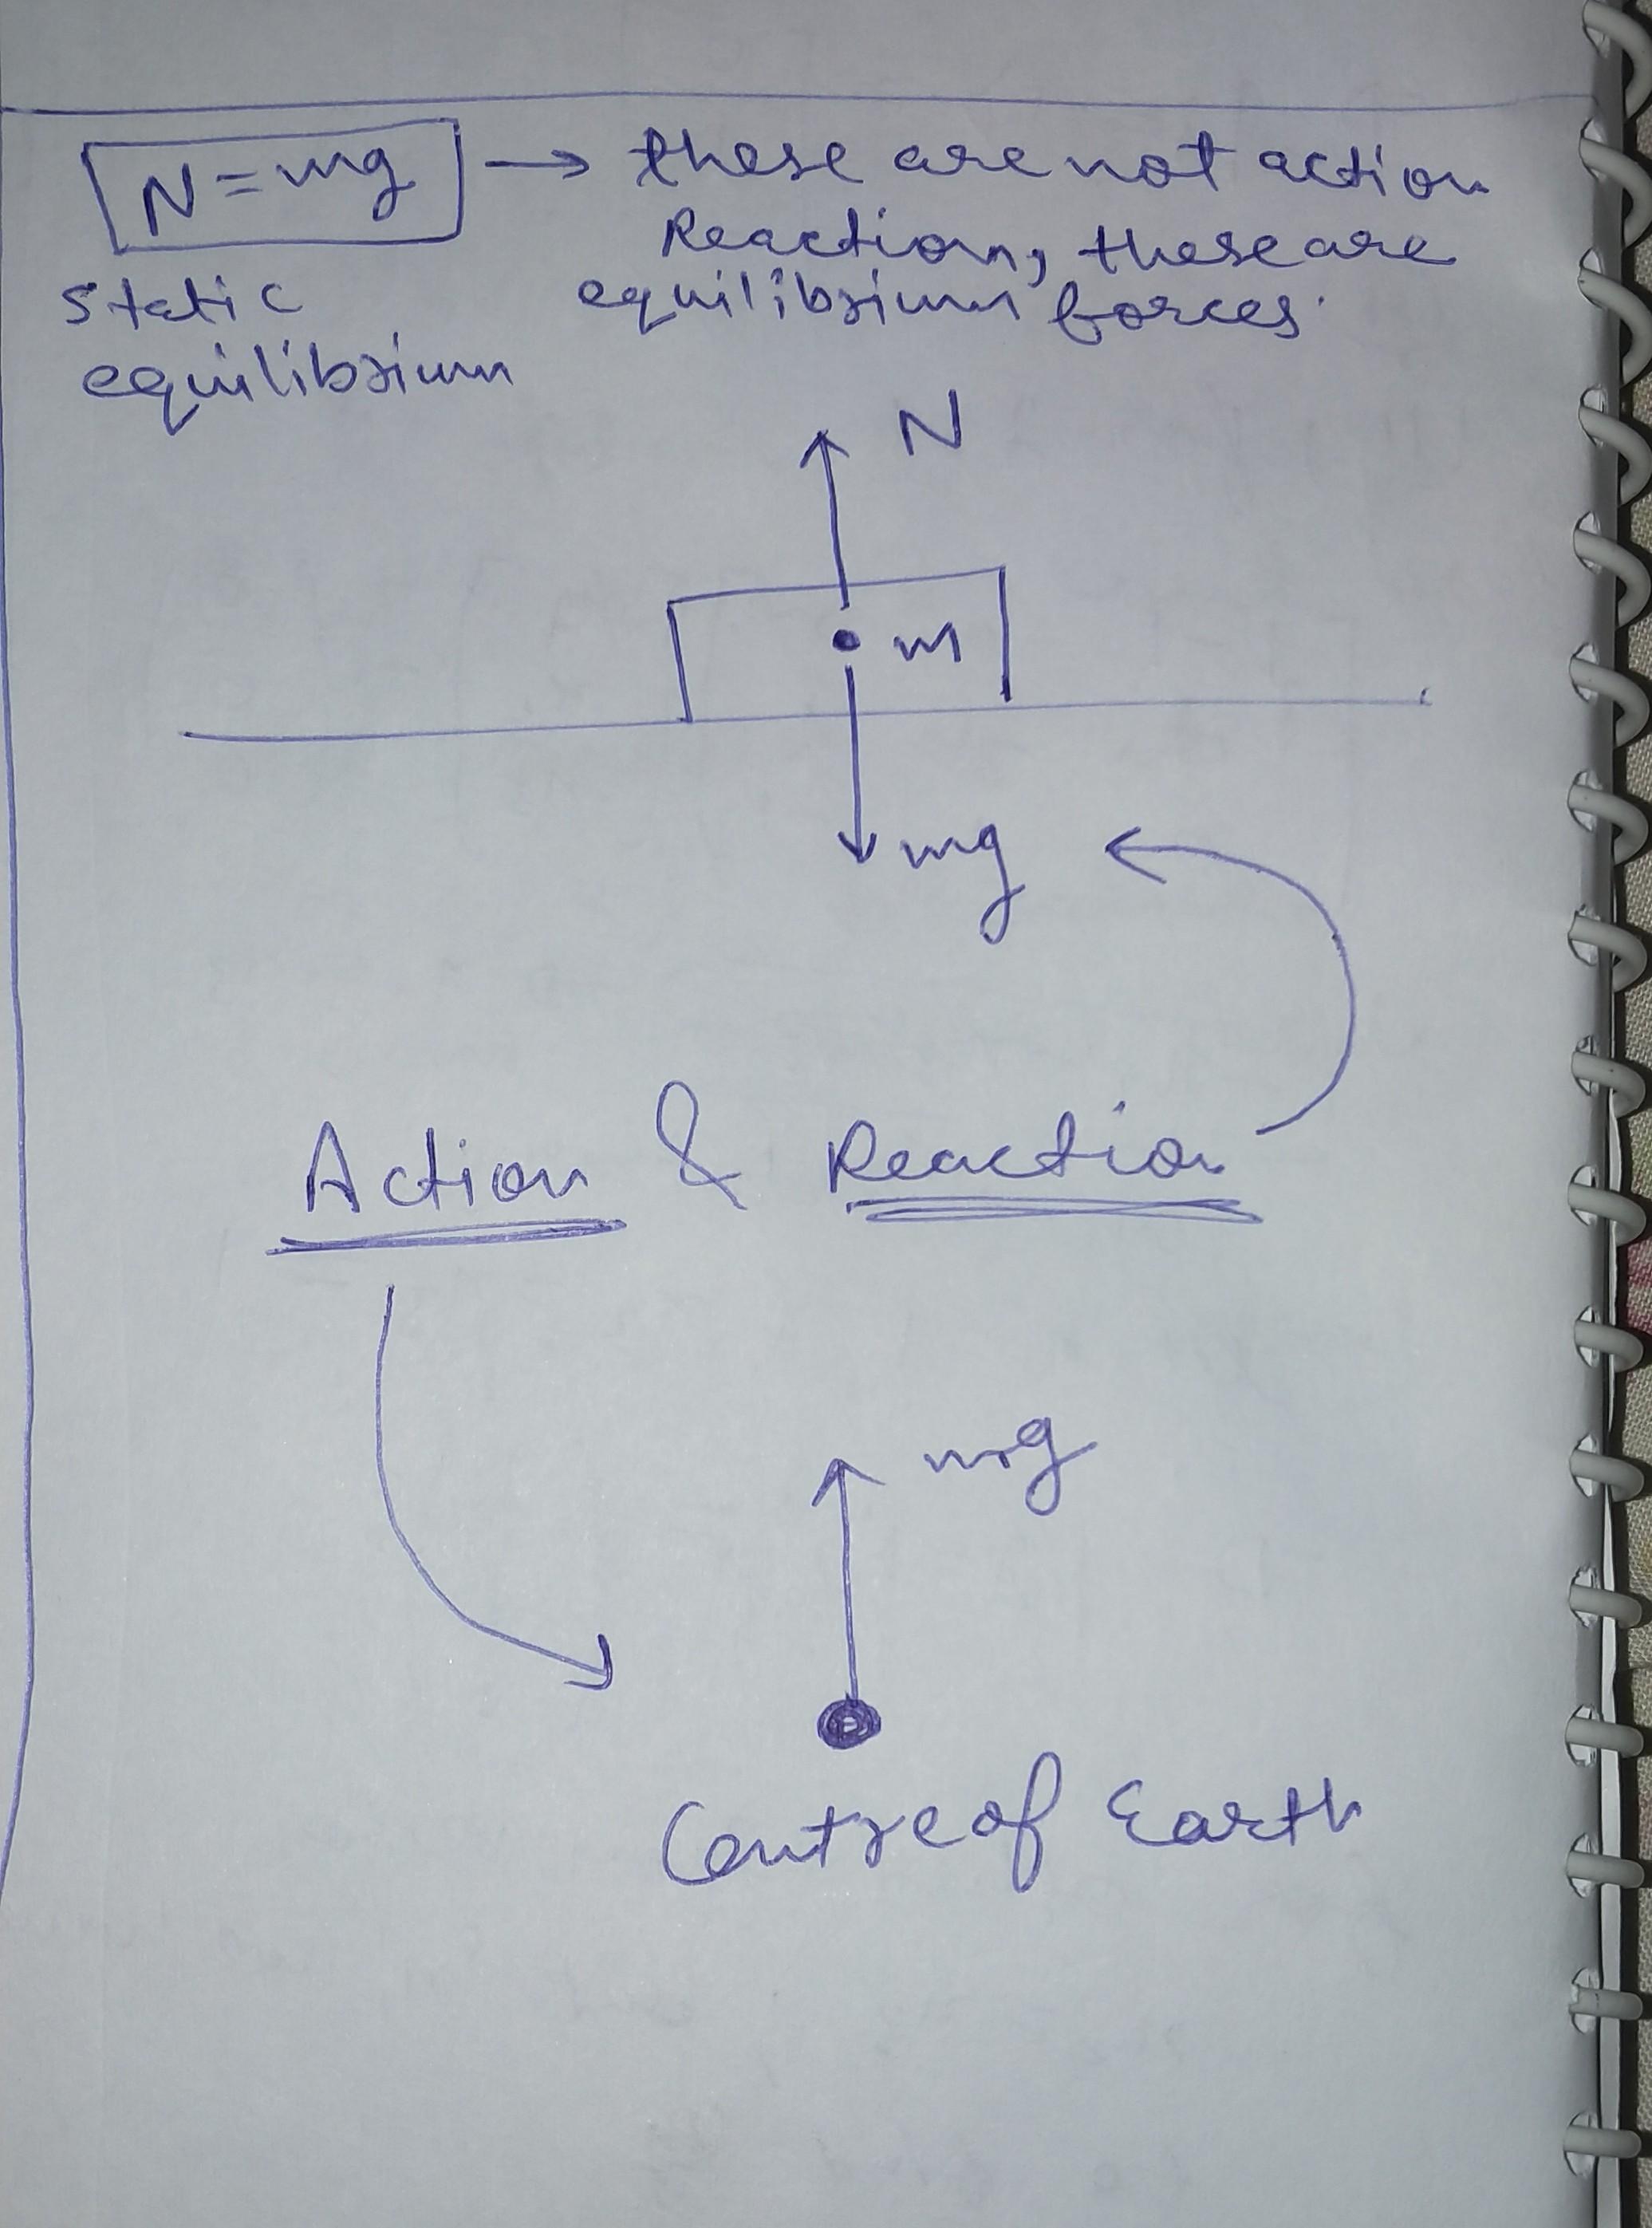 N = mg → these are not action
Reaction, these are
static equilibrium forces.
equilibrium
N
m
mg
Action & Reaction
mg
Centre of Earth